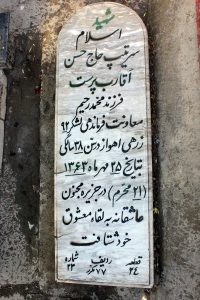 شهید
اسلام
سرتیپ حاج حسن
آقارب پرست
فرزند محمد رحیم
معاونت فرماندهی لشکر ۹۲
زرهی اهواز در سن ۳۸ سالگی
بتاریخ ۲۵ مهر ماه ۱۳۶۳
(۲۱ محرم) در جزیره مجنون
عاشقانه به لقاء معشوق
خود شتافت
قطعه ردیف شماره
۲۴ ۷۷ ۲۳